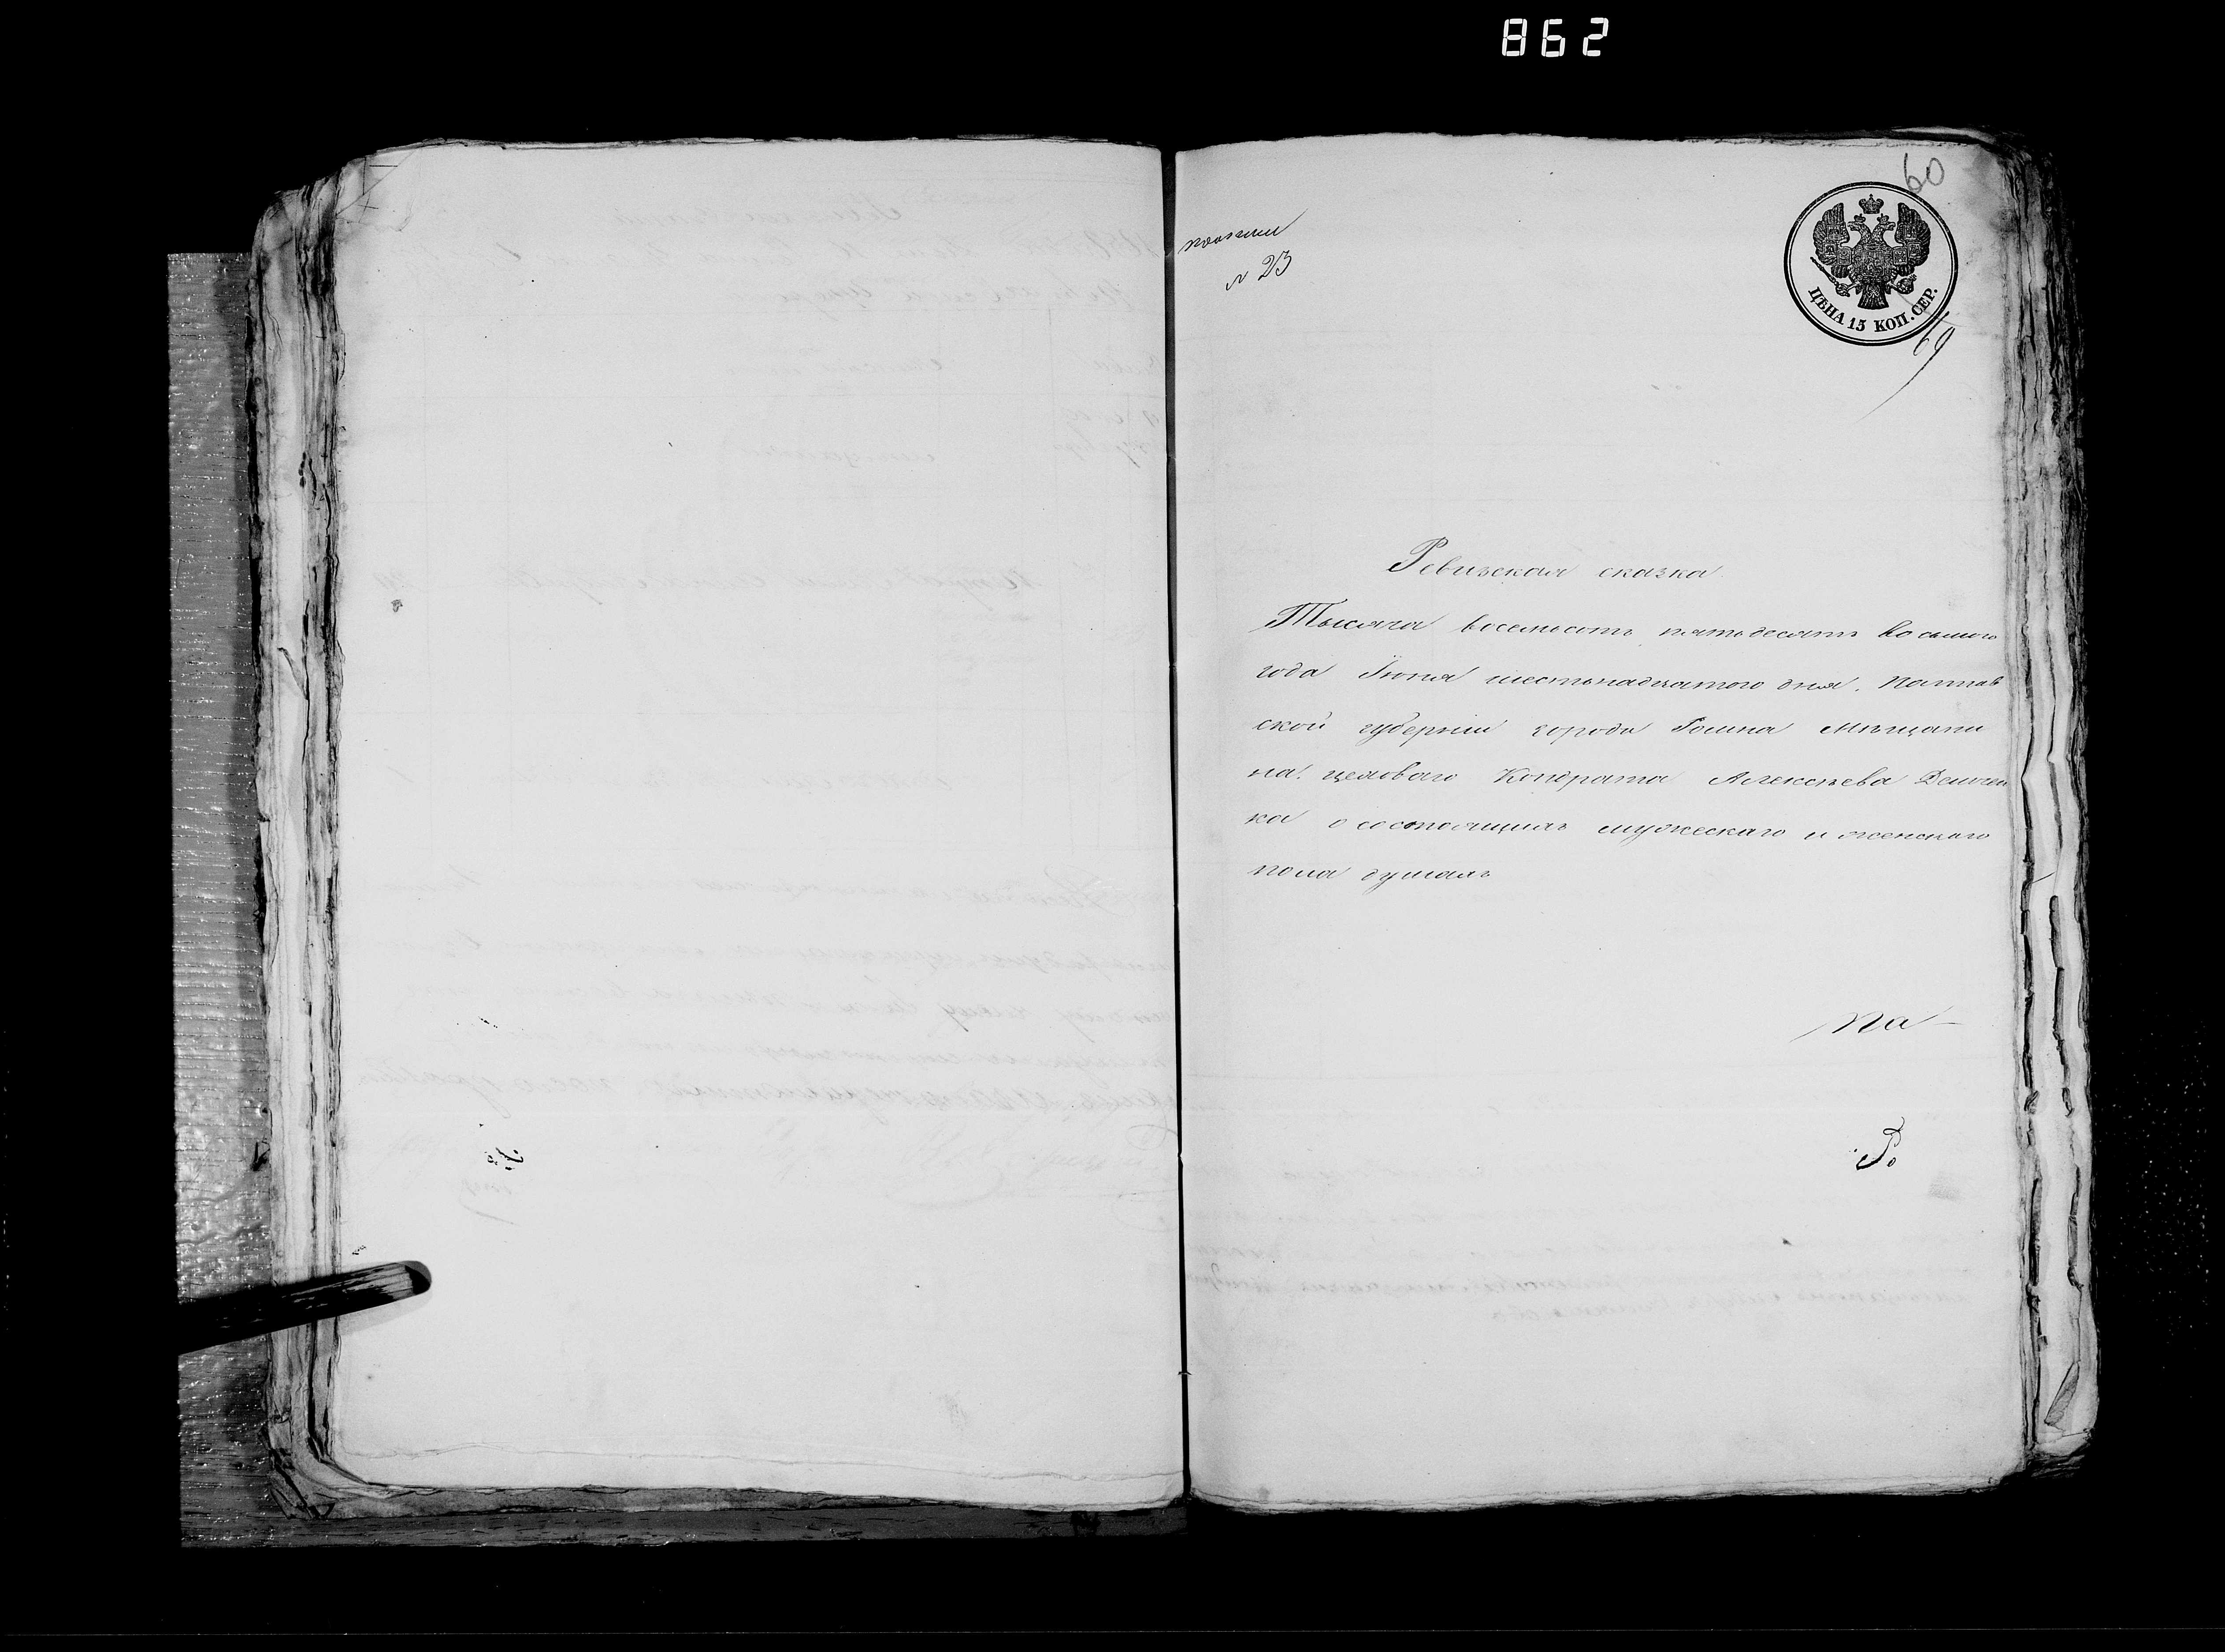 862
60
№ 23
ЦѢНА 15 КОП. СЕР.
69
Ревизская сказка
Тысяча восемьсотъ пятьдесятъ восьмого
года Іюня шестьнадцатого дня. Полтав
ской губерніи города Ромна Мѣщани
на цеховаго Кондрата Алексѣева Демчен
ка о состоящихъ мужескаго и женскаго
пола душахъ
По